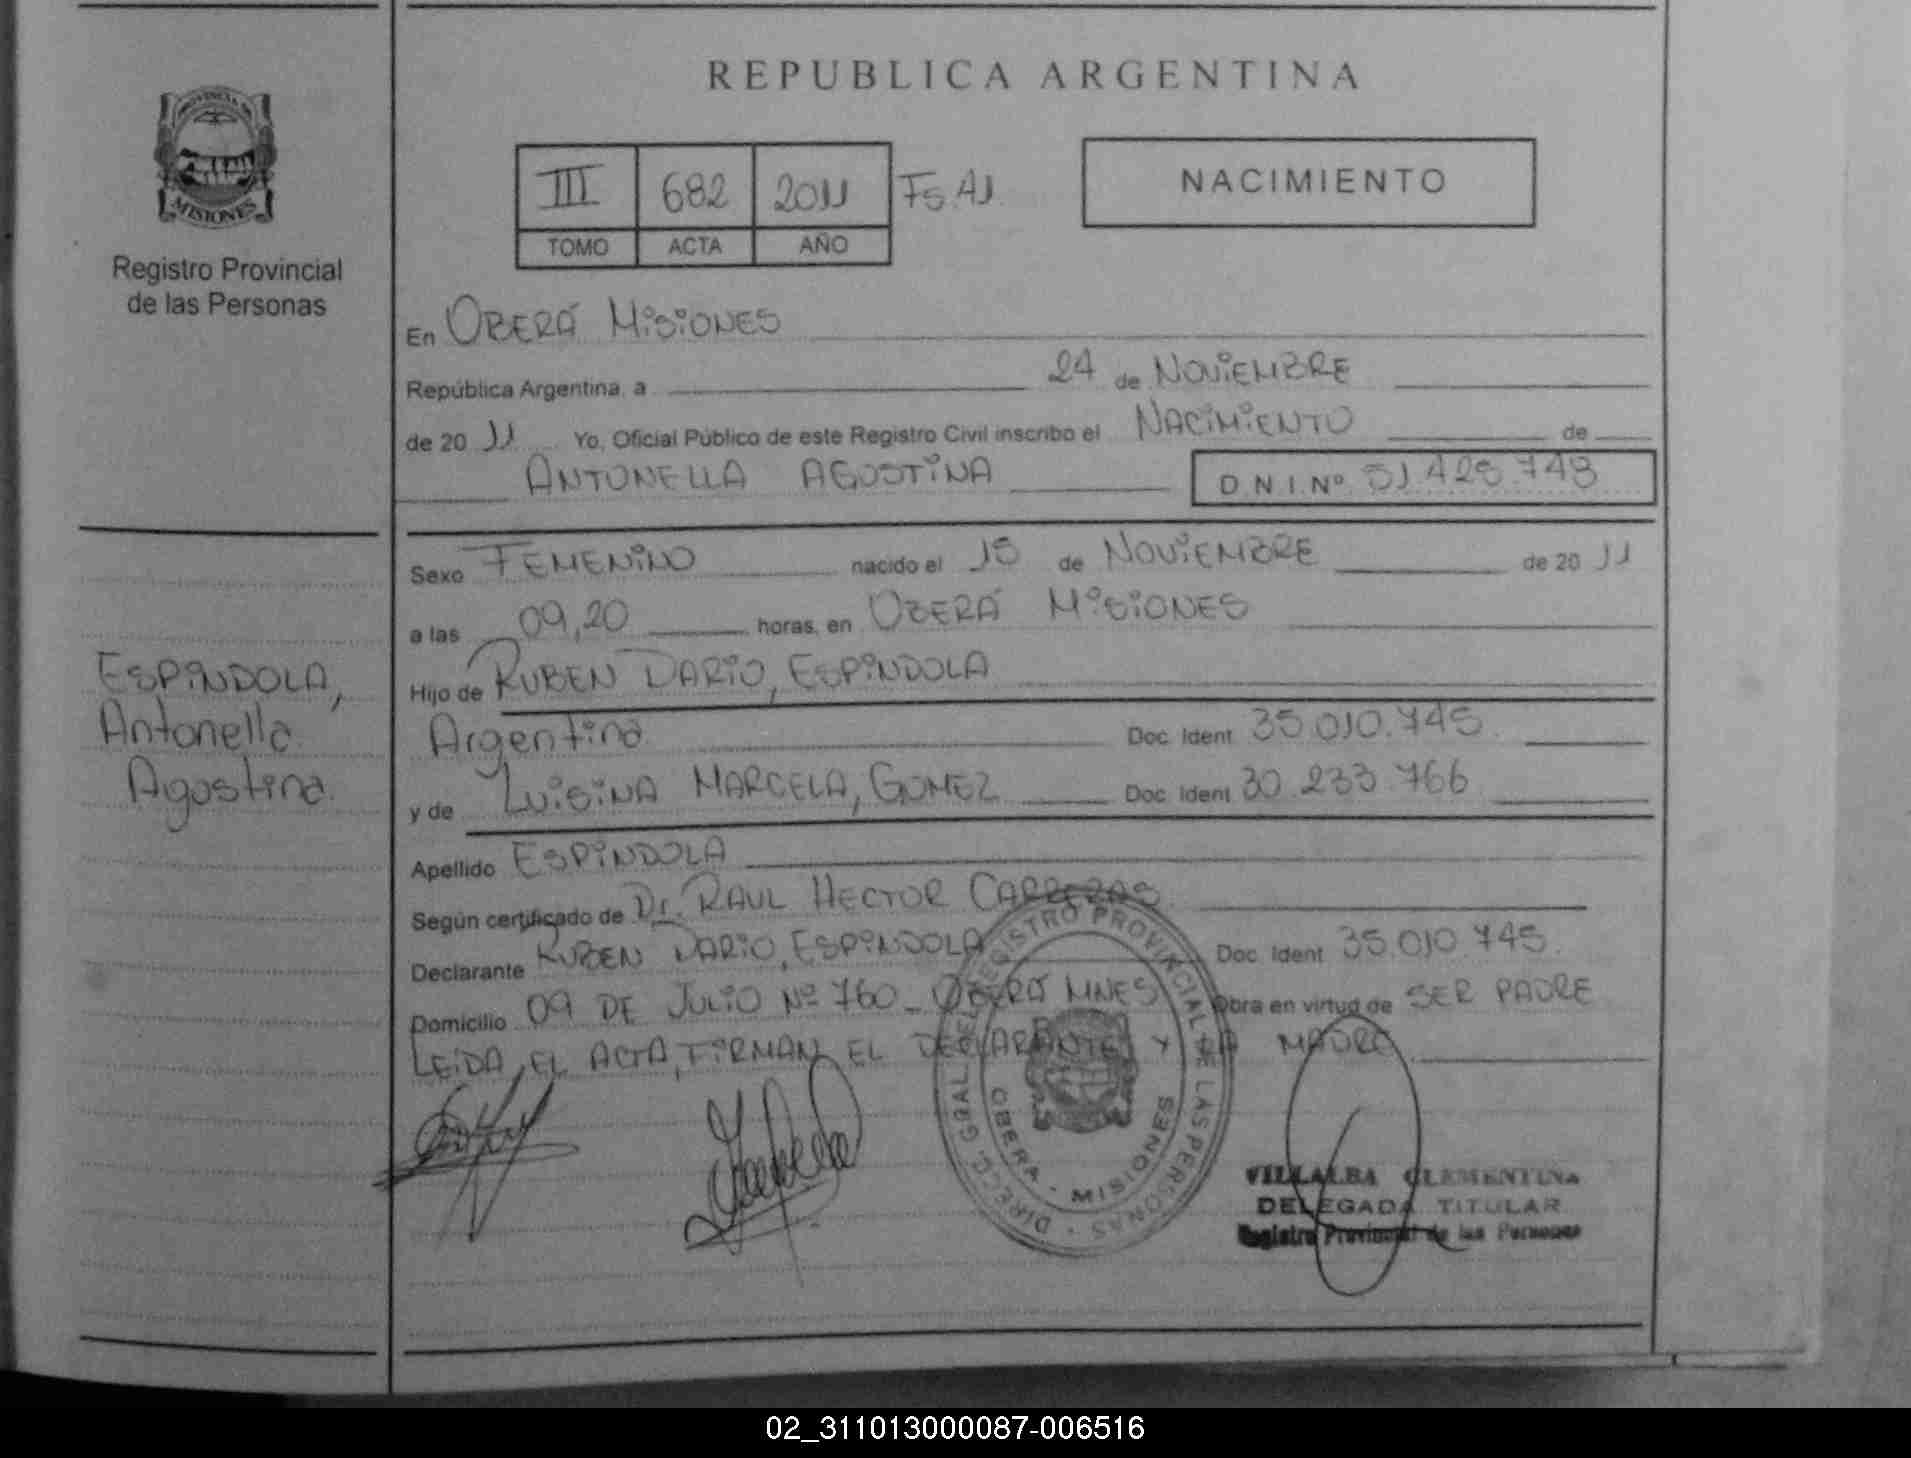 REPUBLICA ARGENTINA
PROVINCIA DE
MISIONES
Registro Provincial
de las Personas
III 682 2011 Fs. 41
TOMO ACTA AÑO
NACIMIENTO
En OBERÁ MISIONES
República Argentina, a 24 de NOVIEMBRE
de 20 11 Yo, Oficial Público de este Registro Civil inscribo el NACIMIENTO de
ANTONELLA AGOSTINA D.N.I.Nº 51.425.743
Sexo FEMENINO nacido el 15 de NOVIEMBRE de 20 11
a las 09,20 horas, en OBERÁ MISIONES
Hijo de RUBEN DARIO, ESPINDOLA
Argentina Doc. Ident. 35.010.745.
y de LUISINA MARCELA, GOMEZ Doc. Ident. 30.233.766
ESPINDOLA,
Antonella
Agostina.
Apellido ESPINDOLA
Según certificado de Dr. RAUL HECTOR CARRERAS
Declarante RUBEN DARIO, ESPINDOLA Doc. Ident. 35.010.745.
Domicilio 09 DE JULIO Nº 760_ OBERÁ MNES Obra en virtud de SER PADRE
LEIDA EL ACTA, FIRMAN EL DECLARANTE Y LA MADRE
DIRECC. GRAL. DEL REGISTRO PROVINCIAL DE LAS PERSONAS
OBERA - MISIONES
VILLALBA CLEMENTINA
DELEGADA TITULAR
Registro Provincial de las Personas
02_311013000087-006516